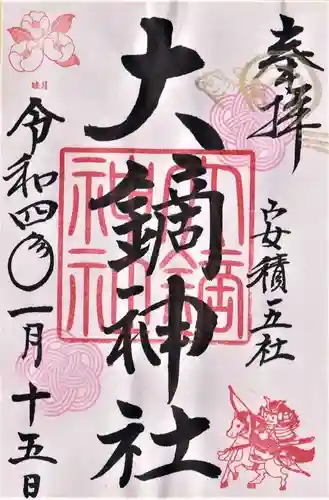 奉拝
安積五社
大鏑神社
大鏑神社
令和四年一月十五日
睦月